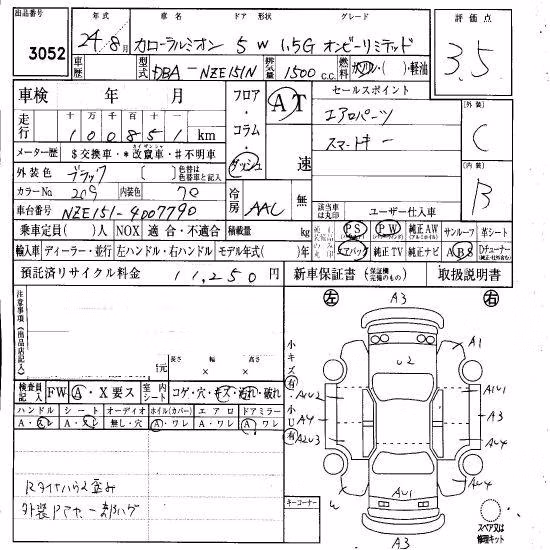 出品番号 3052
年式 24/8月
車名 カローラルミオン
ドア 形状 5 W
グレード 1.5G オンビーリミテッド
評価点 3.5
車歴
型式 DBA-NZE151N
排気量 1500 c.c.
燃料 ガソリン・( )・軽油
車検 年 月
フロア・コラム・ダッシュ
AT 速
セールスポイント
エアロパーツ
スマートキー
[外装] C
[内装] B
走行 十万千百十一
100851 km
メーター歴 $交換車・*改竄車・#不明車
外装色 ブラック
色替は色替車と記入
カラーNo. 209 内装色 70
車台番号 NZE151-4007790
冷房 AAC 無
該当車は丸印
ユーザー仕入車
乗車定員( )人 NOX 適合・不適合 積載量 kg
純正 PS PW 純正AW サンルーフ 革シート
輸入車 ディーラー・並行 左ハンドル・右ハンドル モデル年式( )年
エアバック 純正TV 純正ナビ ABS Dチューナー
預託済リサイクル料金 11,250円
新車保証書 (保証欄完備のもの) 取扱説明書
注意事項(出品店記入)
長さ 幅 高さ
× ×
検査員記入 FW A・X要ス 室内シート コゲ・穴・キズ・汚れ・破れ
ハンドル シート オーディオ ホイル(カバー) エアロ ドアミラー
A・スレ A・スレ 無し・穴 A・ワレ A・ワレ A・ワレ
Rタイヤハウス歪み
キーコーナー
左 右
小キズ有
小U有
A3
A1
U2
A1U2
A1U1
A4
A3
A2U3
AU4
AU4
W
AU1
A3
スペア又は修理キット